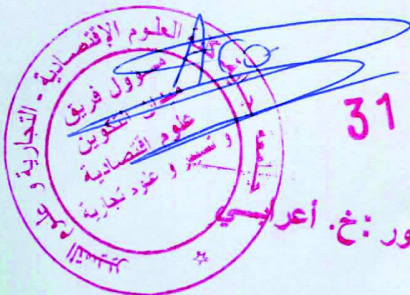 العلوم الإقتصادية - التجارية و علوم التسيير
مسؤول فريق
ميدان التكوين
علوم اقتصادية
و تسيير و علوم تجارية
31
ور : خ. أعرابي